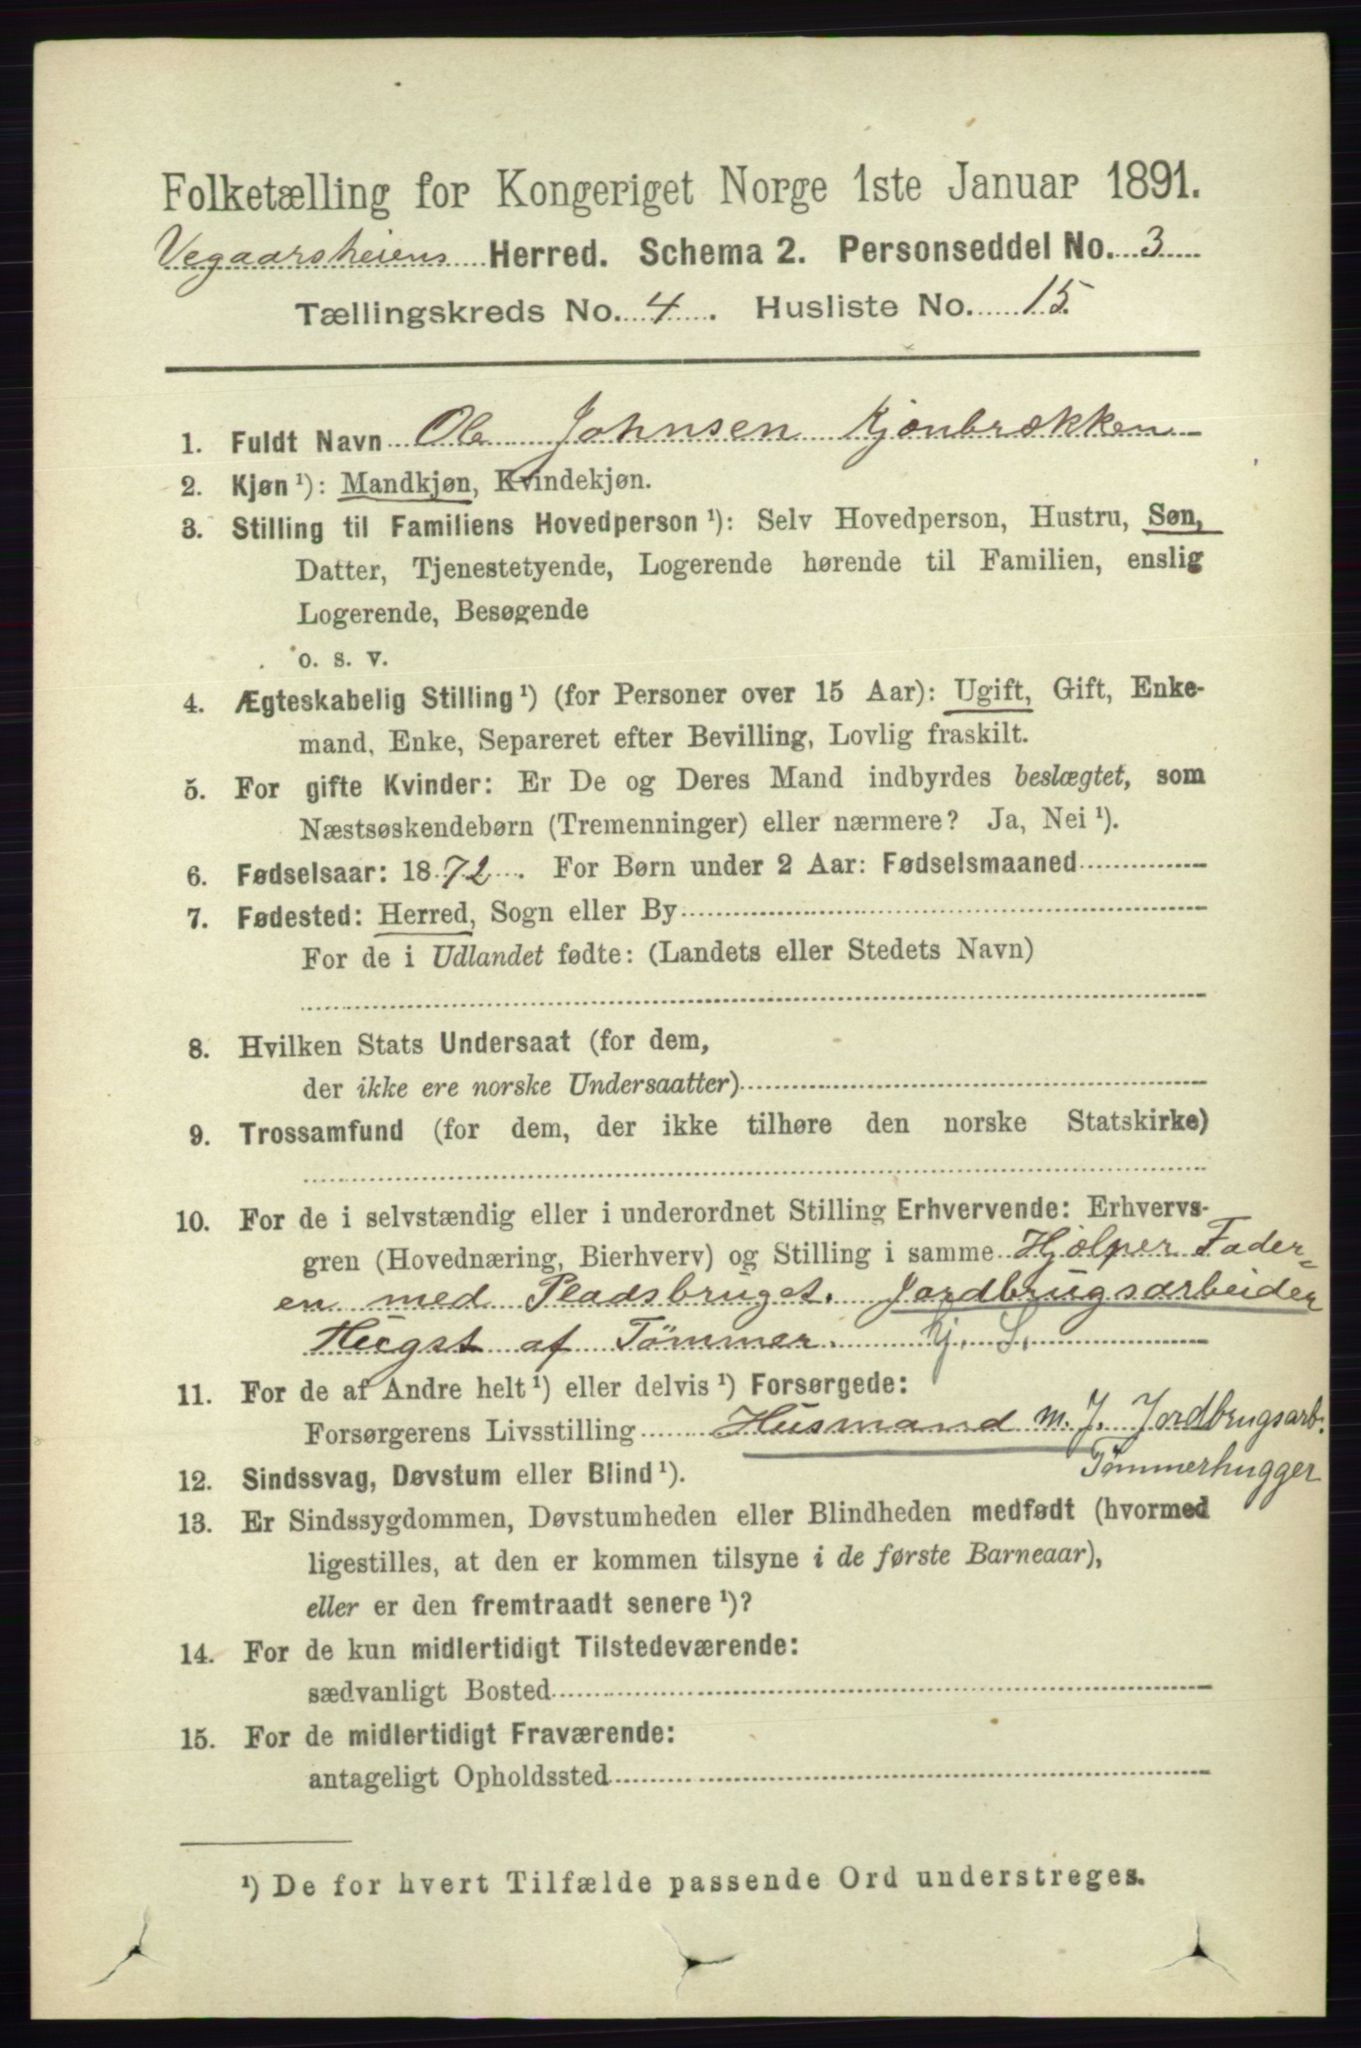 Folketælling for Kongeriget Norge 1ste Januar 1891.
Vegaarsheiens Herred. Schema 2. Personseddel No. 3
Tællingskreds No. 4. Husliste No. 15.
1. Fuldt Navn Ole Johnsen Kjønbrækken
2. Kjøn ¹): Mandkjøn, Kvindekjøn.
3. Stilling til Familiens Hovedperson ¹): Selv Hovedperson, Hustru, Søn,
Datter, Tjenestetyende, Logerende hørende til Familien, enslig
Logerende, Besøgende
o. s. v.
4. Ægteskabelig Stilling ¹) (for Personer over 15 Aar): Ugift, Gift, Enke-
mand, Enke, Separeret efter Bevilling, Lovlig fraskilt.
5. For gifte Kvinder: Er De og Deres Mand indbyrdes beslægtet, som
Næstsøskendebørn (Tremenninger) eller nærmere? Ja, Nei ¹).
6. Fødselsaar: 1872. For Børn under 2 Aar: Fødselsmaaned
7. Fødested: Herred, Sogn eller By
For de i Udlandet fødte: (Landets eller Stedets Navn)
8. Hvilken Stats Undersaat (for dem,
der ikke ere norske Undersaatter)
9. Trossamfund (for dem, der ikke tilhøre den norske Statskirke)
10. For de i selvstændig eller i underordnet Stilling Erhvervende: Erhvervs-
gren (Hovednæring, Bierhverv) og Stilling i samme Hjølper Fader=
en med Pladsbruget. Jordbrugsarbeider
Hugst af Tømmer. Kj. S.
11. For de af Andre helt ¹) eller delvis ¹) Forsørgede:
Forsørgerens Livsstilling Husmand m. J. Jordbrugsarb.
Tømmerhugger
12. Sindssvag, Døvstum eller Blind ¹).
13. Er Sindssygdommen, Døvstumheden eller Blindheden medfødt (hvormed
ligestilles, at den er kommen tilsyne i de første Barneaar),
eller er den fremtraadt senere ¹)?
14. For de kun midlertidigt Tilstedeværende:
sædvanligt Bosted
15. For de midlertidigt Fraværende:
antageligt Opholdssted
¹) De for hvert Tilfælde passende Ord understreges.